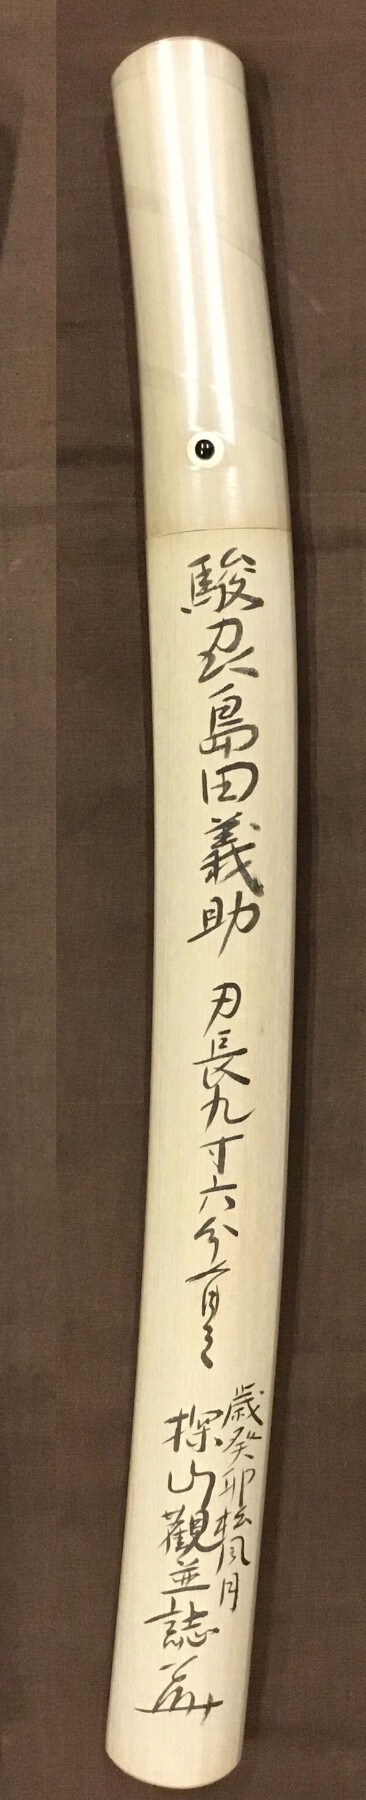 駿忍島田義助 刃長九寸六分有之
歳癸卯松風月
探山觀並誌